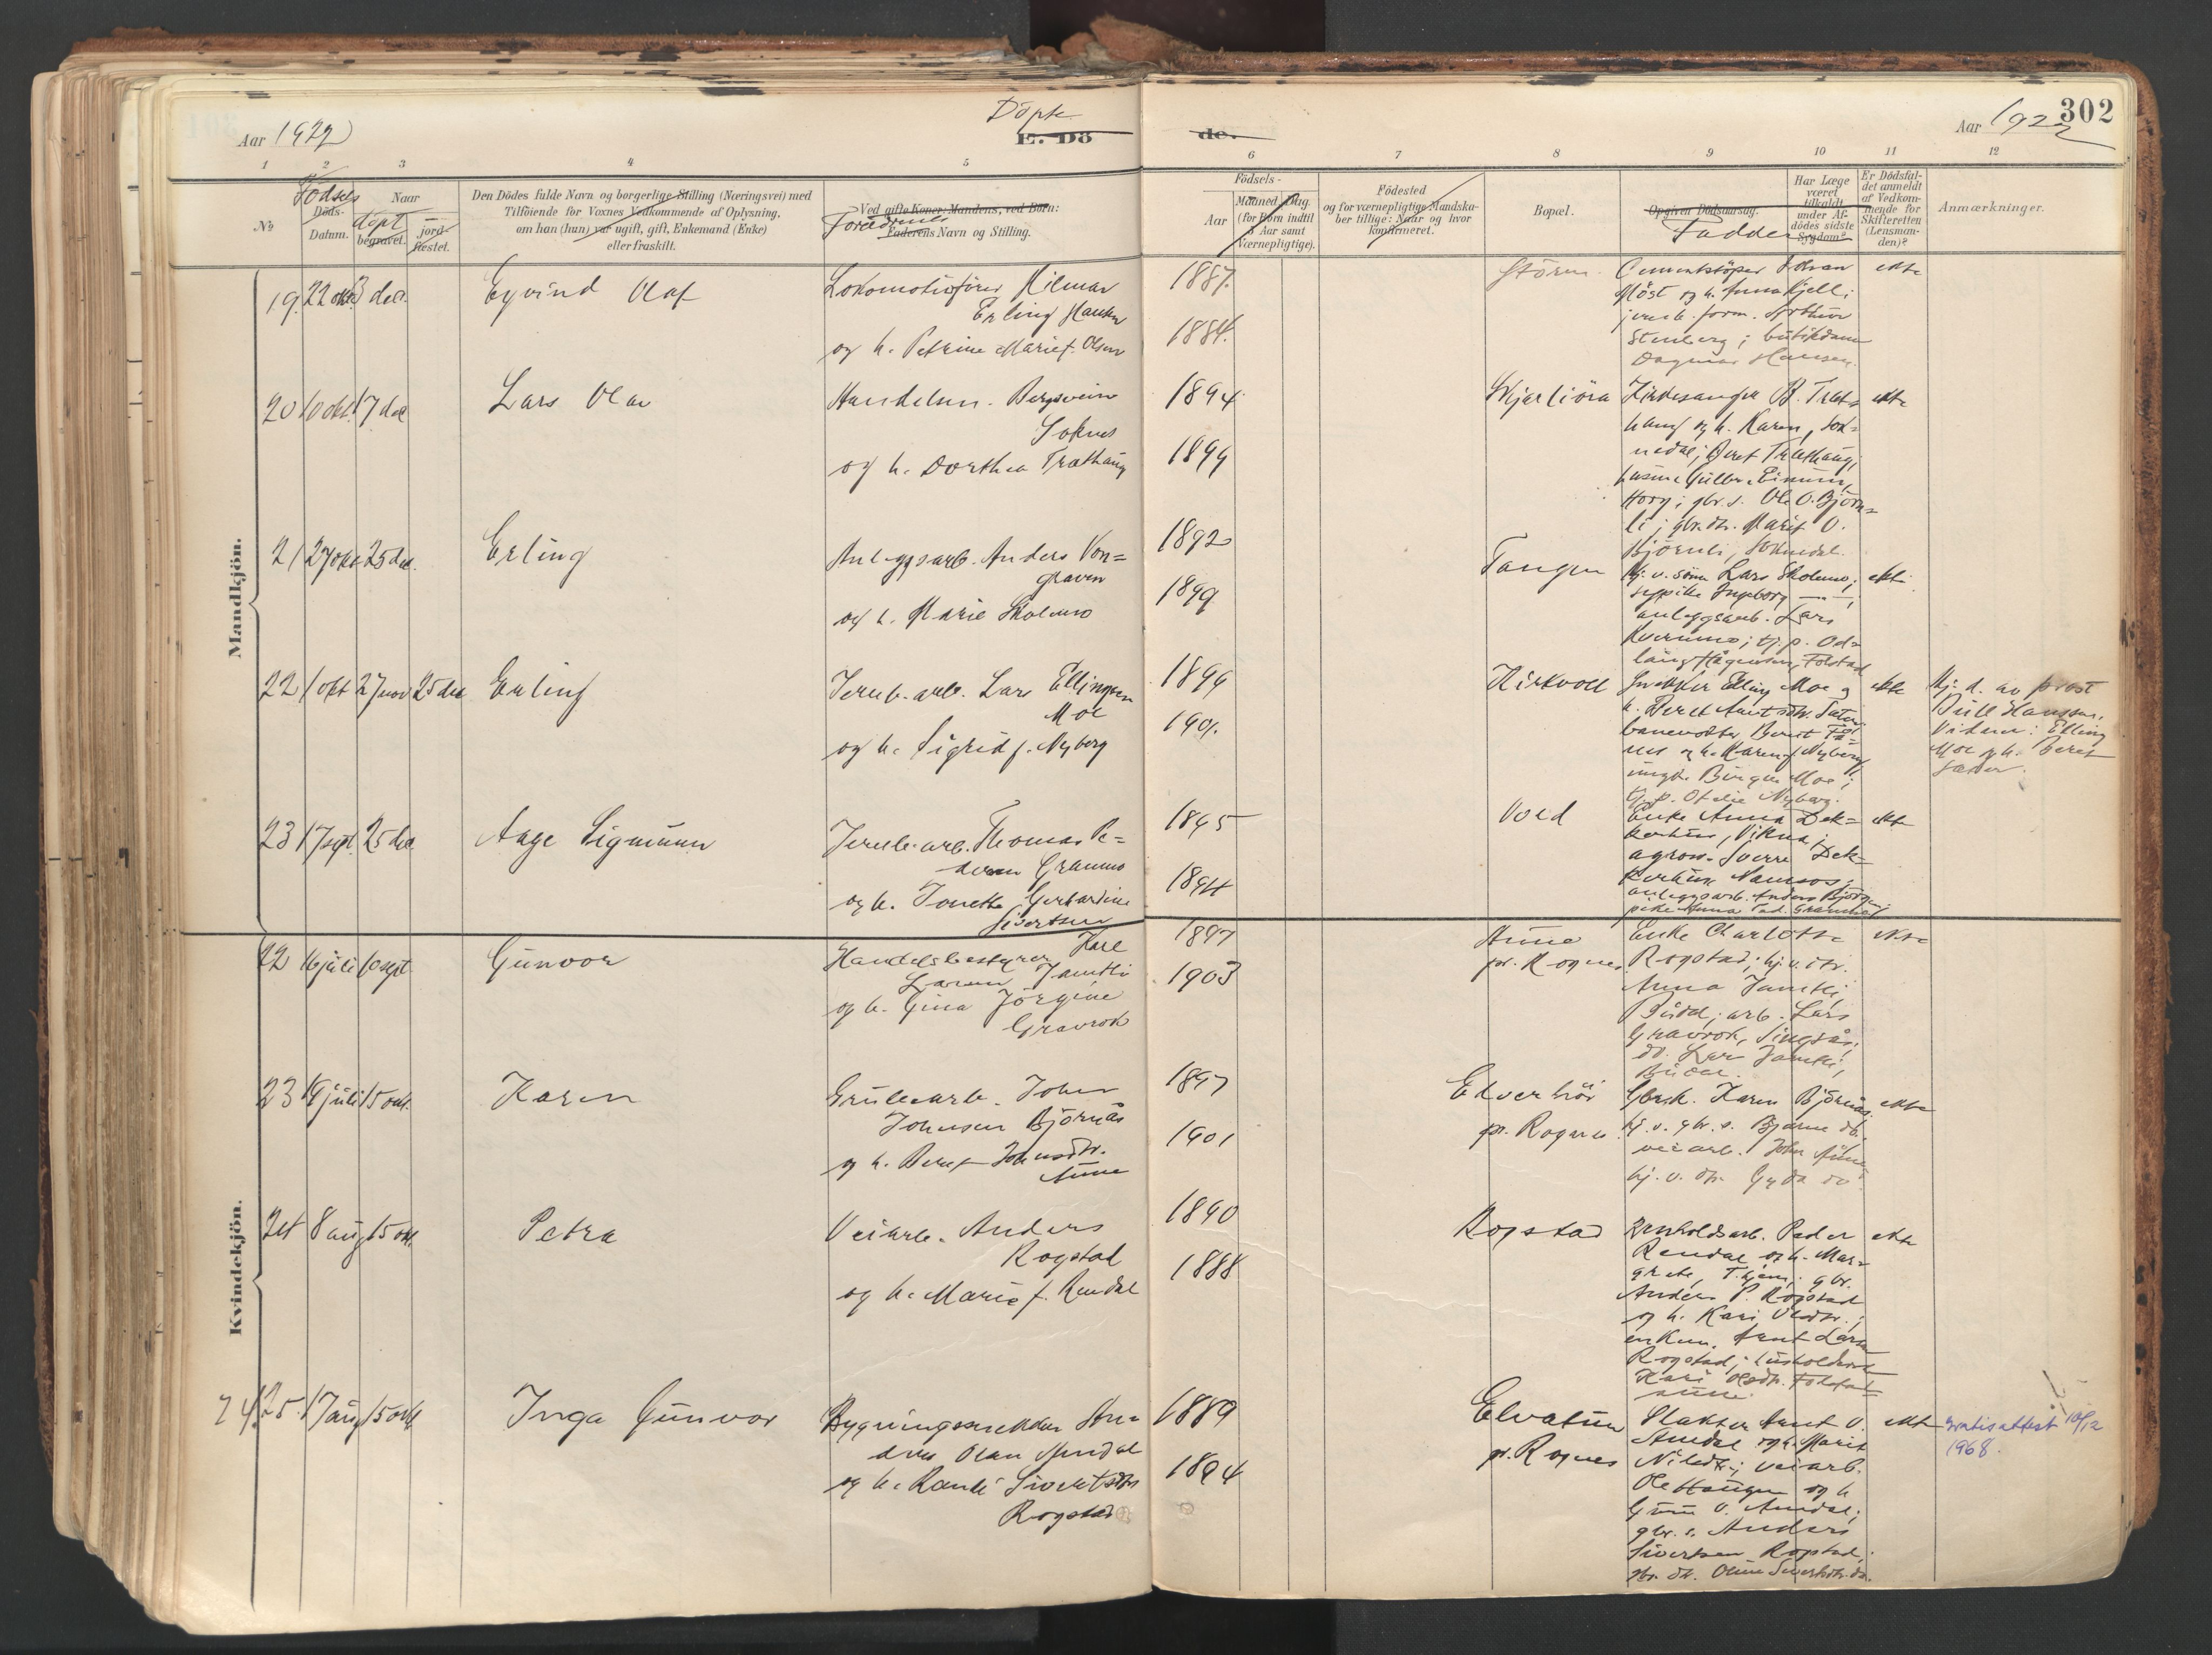 Aar 1922
Döpte
E. Dö
de.
Aar 1922
302
1 2 3 4 5 6 7 8 9 10 11 12
No
Födsels
Döds-
Datum.
Naar
döpt
begravet.
jord-
fæstet.
Den Dödes fulde Navn og borgerlige Stilling (Næringsvei) med
Tilföiende for Voxnes Vedkommende af Oplysning,
om han (hun) var ugift, gift, Enkemand (Enke)
eller fraskilt.
Ved gifte Koner: Mandens, ved Börn:
Forældrenes
Faderens Navn og Stilling.
Födsels-
Aar
Maaned Dag.
(for Börn indtil
5 Aar samt
Værnepligtige).
Födested
og for værnepligtige Mandska-
ber tillige: Naar og hvor
konfirmeret.
Bopæl.
Opgiven Dödsaarsag.
Fadder
Har Læge
været
tilkaldt
under Af-
dödes sidste
Sygdom?
Er Dödsfal-
det anmeldt
af Vedkom-
mende for
Skifteretten
(Lensman-
den)?
Anmærkninger.
Mandkjön.
19 22 okt 3 des. Eyvind Olaf
Lokomotivfører Hilmar
Erling Hansen
og h. Petrine Marie f. Olsen
1887.
1884.
Stören.
Cementstöper Johan
Möst og h. Anna Kjelli
jernb. form. Arthur
Stenberg; butikdame
Dagmar Hansen.
ekte
20 10 okt. 17 des Lars Olav
Handelsm. Bergsvein
Soknes
og h. Dorthea Træthaug
1894
1899
Kirkesanger B. Træt-
haug og h. Karen, Sok-
nedal; Beret Træthaug,
Horg; gbr.s. Ole O. Björn-
li; gbr.dtr. Marit O.
Björnli, Soknedal.
ekte
21 27 okt 25 des. Erling
Anleggsarb. Anders Von-
graven
og h. Marie Skolmo
1892
1899
Tangen
hj. v. sönn Lars Skolmo;
sypike Ingeborg —;
anleggsarb. Lars
Kvernmo; tj.p. Od-
laug Hågensen, Folstad
ekte
22 1 okt 27 nov 25 des Erling
Jernb. arb. Lars Ellingsen
Moe
og h. Sigrid f. Nyberg
1899
1901.
Kirkvoll
Snekker Elling Moe og
h. Beret Arntsdtr. Sæter;
banevokter Bernt Få-
nes og h. Karen f. Nyberg
ungk. Birger Moe;
tj.p. Otelie Nyberg.
ekte
hj. d. av prost
Bull Hansen.
Vitner: Elling
Moe og h. Beret
Sæter.
23 17 sept. 25 des Aage Sigmunn
Jernb. arb. Thomas Pe-
dersen Grannmo
og h. Jonette Gerhardine
Sivertsen
1895
1894
Vold
Enke Anna Dek-
kerhus, Vikna;
agron. Sverre Dek-
kerhus, Namsos;
anleggsarb. Anders Björge
pike Anna
ekte
Kvindekjön.
22 16 juli 10 sept Gunvor
Handelsbestyrer Karl
Larsen Jamtli
og h. Gina Jörgine
Gravrok
1897
1903
Aune
pr. Rognes
Enke Charlotte
Rogstad; hj.v.dtr.
Anna Jamtli,
Budal; arb. Lars
Gravrok, Singsås;
do. Lars Jamtli,
Budal.
ekte
23 19 juli 15 okt. Karen
Grubearb. John
Johnsen Björnås
og h. Beret Johnsdtr.
Aune
1897
1901
pr. Rognes
Gbrsk. Karen Björnås.
hj. v. gbr. s. Bjarne do.
veiarb. John Aune
hj. v. dtr. Gyda do
ekte
24 8 aug 15 okt. Petra
Veiarb. Anders
Rogstad
og h. Marie f. Rendal
1890
1888
Rogstad
Peder
Rendal og h. Mar-
grete, Thjem; gbr.
Anders P. Rogstad
og h. Kari Olsdtr.;
enkem. Arnt Larsen
Rogstad; husholderske
Kari Olsdtr. Folstad-
aune.
ekte
24 25. 17 aug 15 okt Inga Gunvor
Bygningssnekker An-
ders Olsen Amdal
og h. Randi Sivertsdtr
Rogstad
1889
1894
Elvatun
pr. Rognes
Slakter Arnt O.
Amdal og h. Marit
Nilsdtr; veiarb.
Ole Haugen og h
Guru O. Amdal;
gbr. s. Anders
Sivertsen Rogstad;
gbr. dtr. Oline Sivertsdtr. do.
ekte
Gratisattest 10/12
1968.